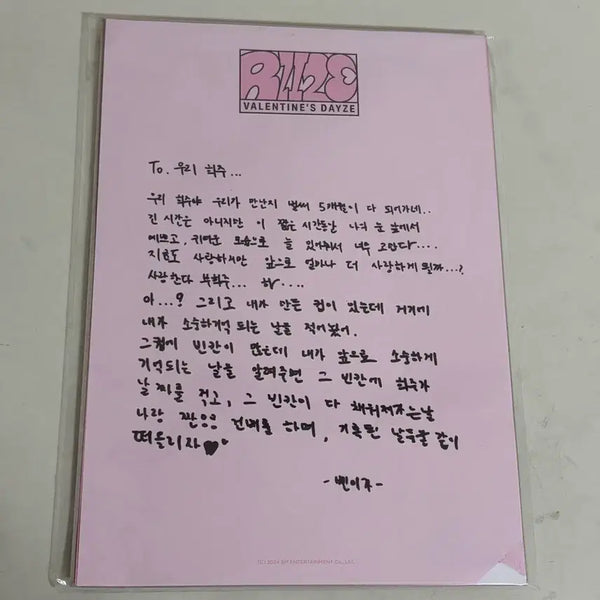 RIIZE
VALENTINE'S DAYZE
To. 우리 희주...
우리 희주야 우리가 만난지 벌써 5개월이 다 되어가네..
긴 시간은 아니지만 이 짧은 시간동안 나의 눈 앞에서
예쁘고, 귀여운 모습으로 늘 있어줘서 너무 고맙다....
지금도 사랑하지만 앞으로 얼마나 더 사랑하게 될까...?
사랑한다 부희주...
아...? 그리고 내가 만든 컵이 있는데 거기에
내가 소중하게 기억 되는 날을 적어놨어.
그컵에 빈칸이 많은데 내가 앞으로 소중하게
기억되는 날을 알려주면 그 빈칸에 희주가
날짜를 적고, 그 빈칸이 다 채워져가는날
나랑 짠 건배를 하며, 기록된 날들을 같이
떠올리자♥
-벤이가-
(C) 2024 SM ENTERTAINMENT Co., Ltd.